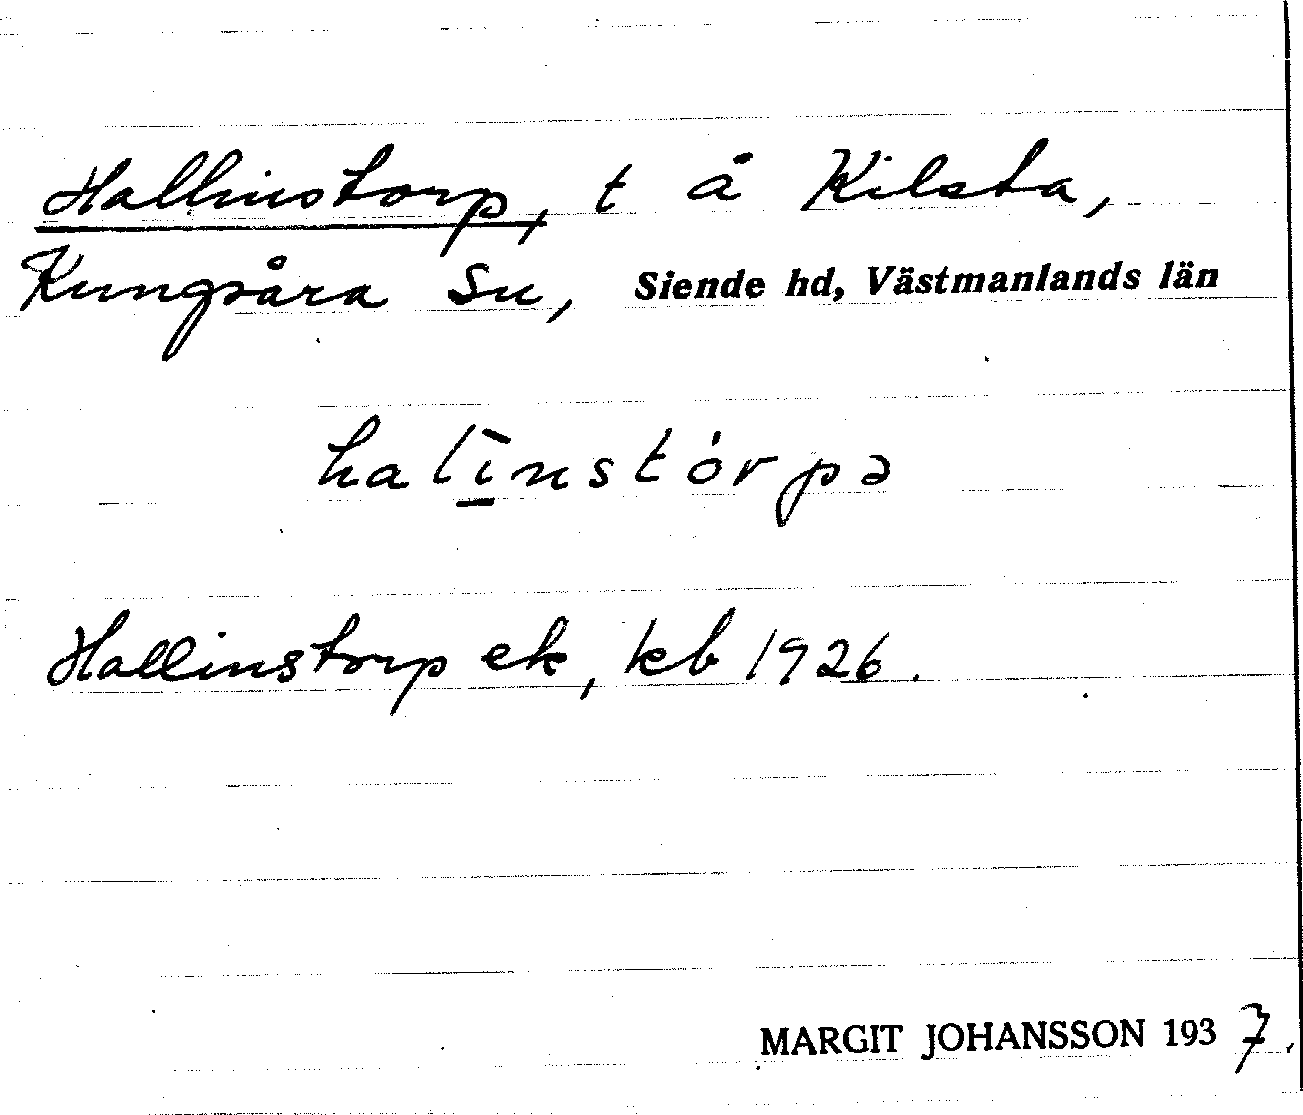 Hallinstorp, t å Kilsta,
Kungsåra sn, Siende hd, Västmanlands län
halı̱̀nstórpə
Hallinstorp ek, kb 1926.
MARGIT JOHANSSON 1937.